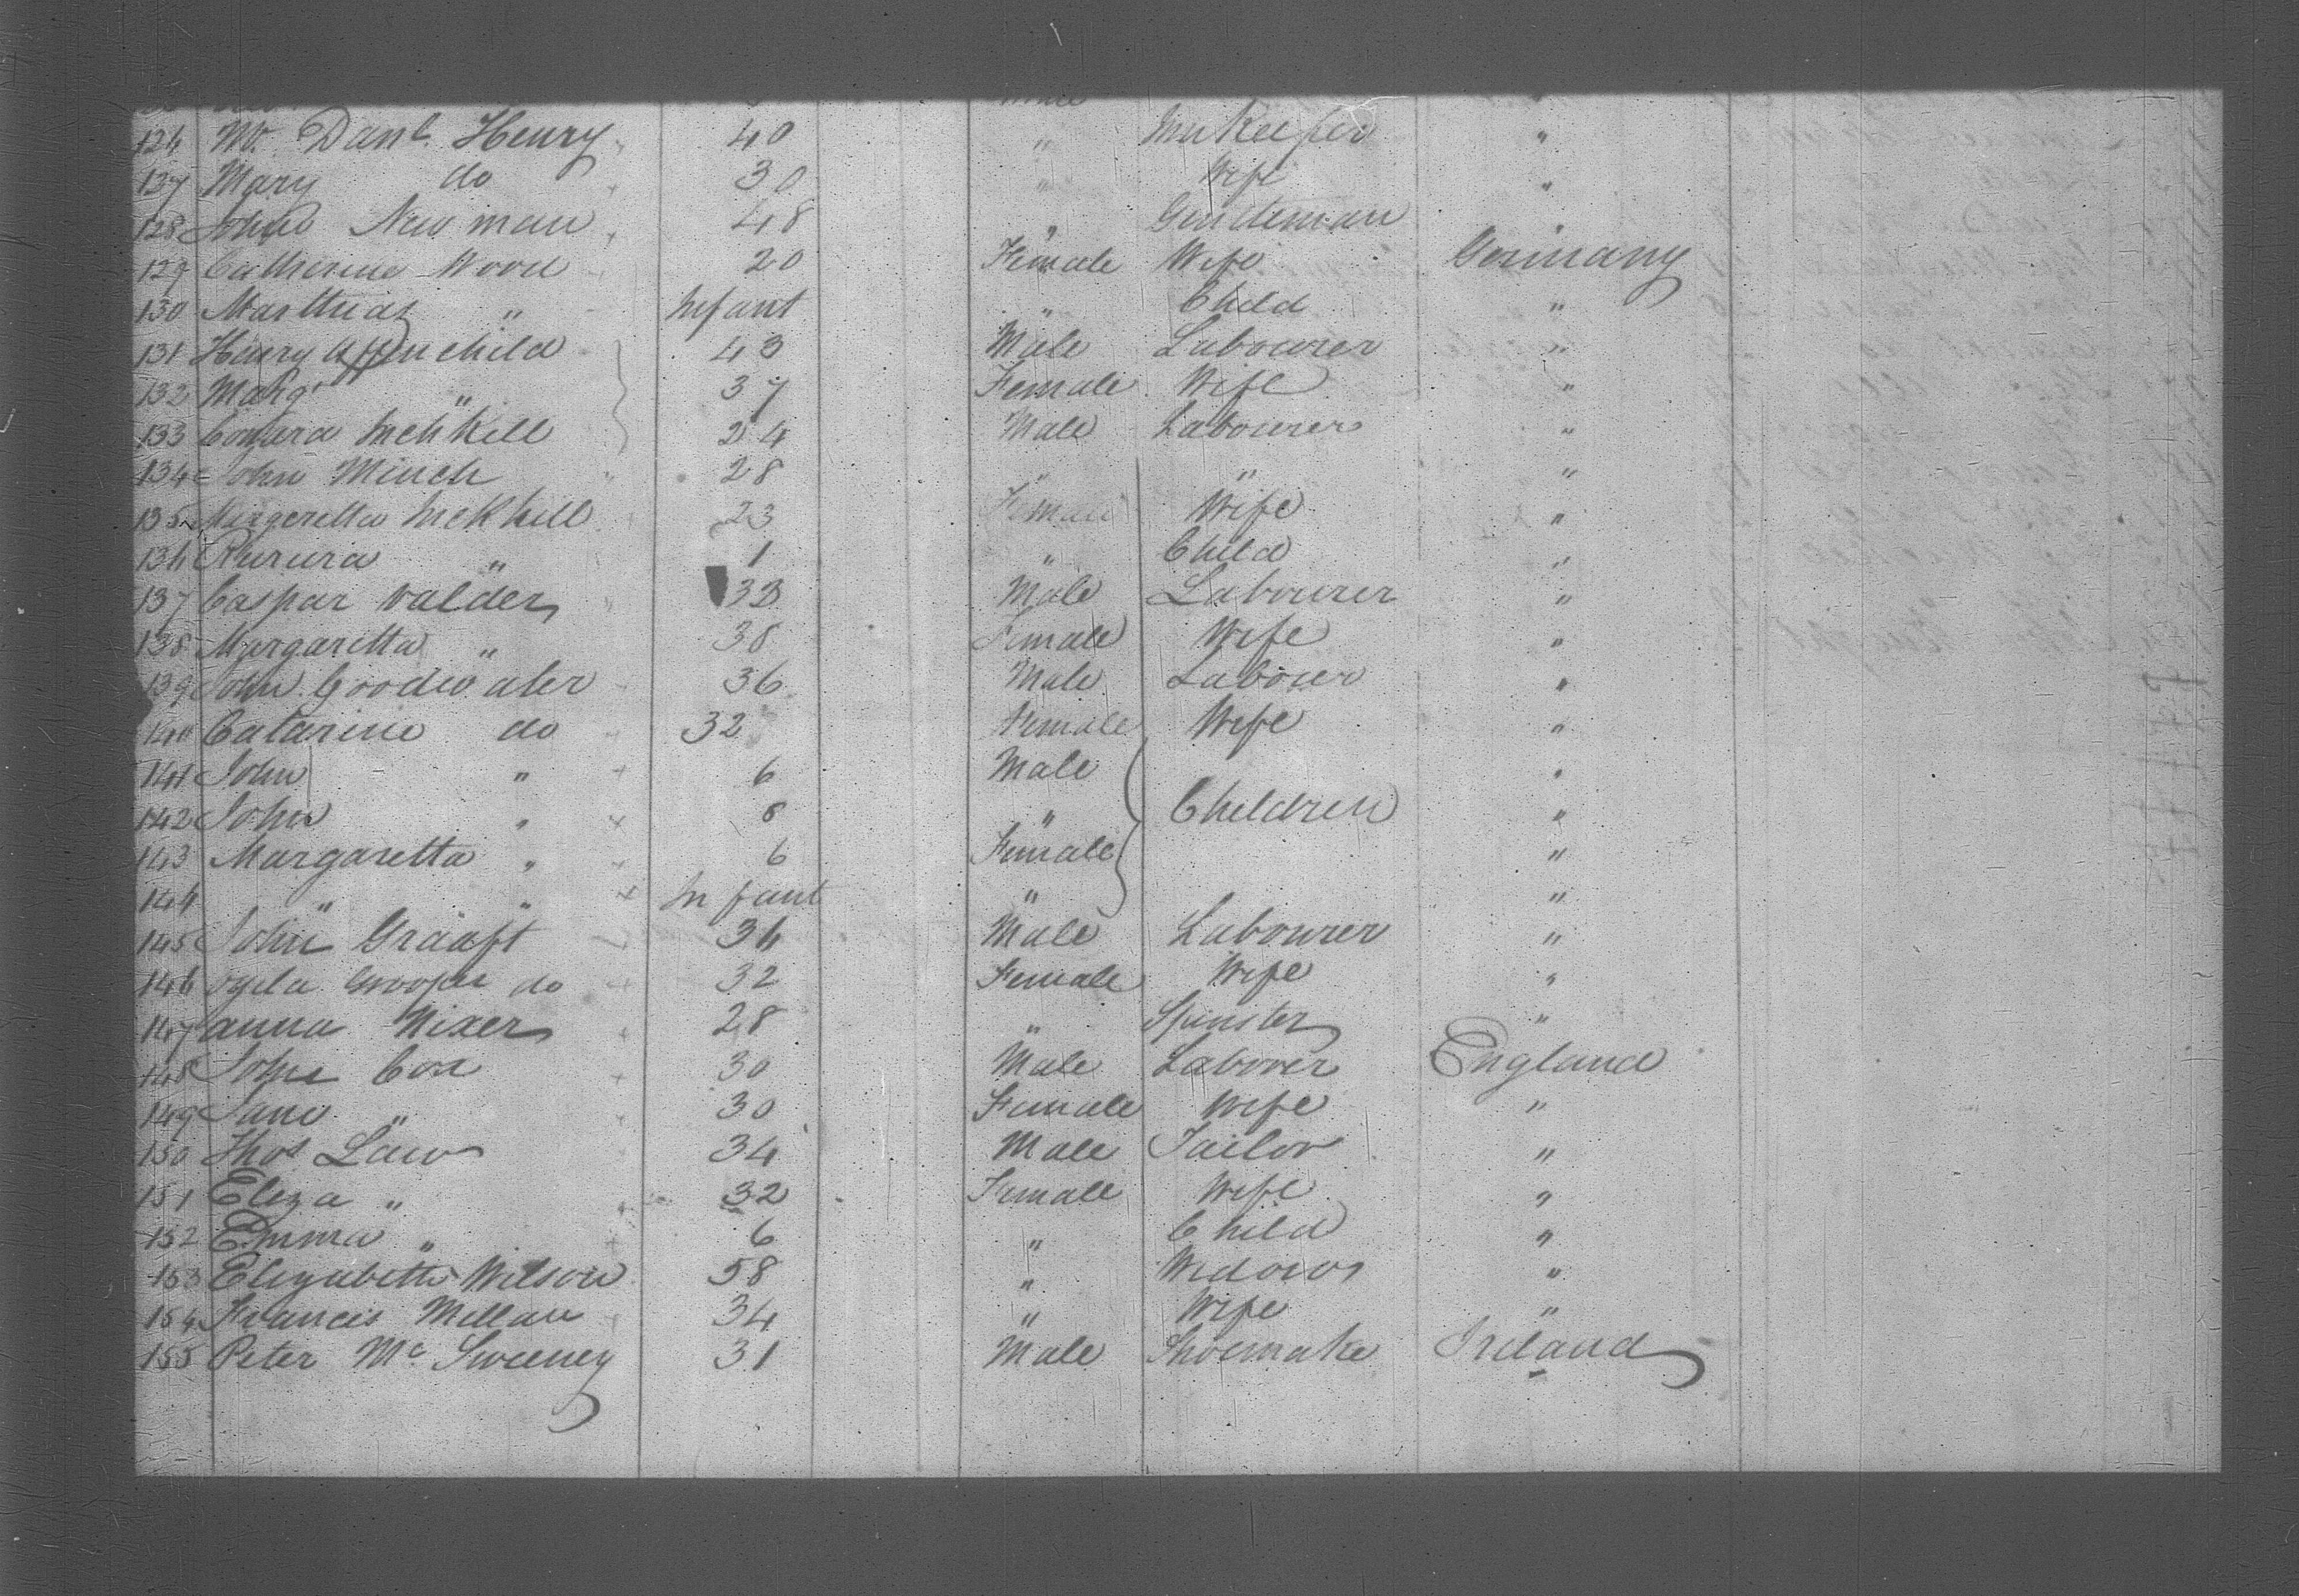 126 Mr. Danl. Henry 40 " Innkeeper "
127 Mary do 30 " Wife "
128 John Newman 48 " Gentleman "
129 Catherine Wood 20 Female Wife Germany
130 Matthias " Infant " Child "
131 Henry 43 Male Labourer "
132 Marg " 37 Female Wife "
133 24 Male Labourer "
134 John Minch 28 " " "
135 23 Female Wife "
136 " 1 " Child "
137 Caspar Valder 33 Male Labourer "
138 Margaretta " 38 Female Wife "
139 John Goodwater 36 Male Labourer "
140 Catarine do 32 Female Wife "
141 John " 6 Male "
142 John " 8 " Children "
143 Margaretta " 6 Female "
144 " " Infant " "
145 John Graaft 34 Male Labourer "
146 do 32 Female Wife "
147 anna Nixer 28 " Spinster "
148 John Cox 30 Male Laborer England
149 Jane " 30 Female Wife "
150 Thos Law 34 Male Tailor "
151 Eliza " 32 Female Wife "
152 Emma " 6 " Child "
153 Elizabeth Wilson 58 " Widow "
154 Francis Millan 34 " Wife "
155 Peter Mc Sweeney 31 Male Shoemake Ireland